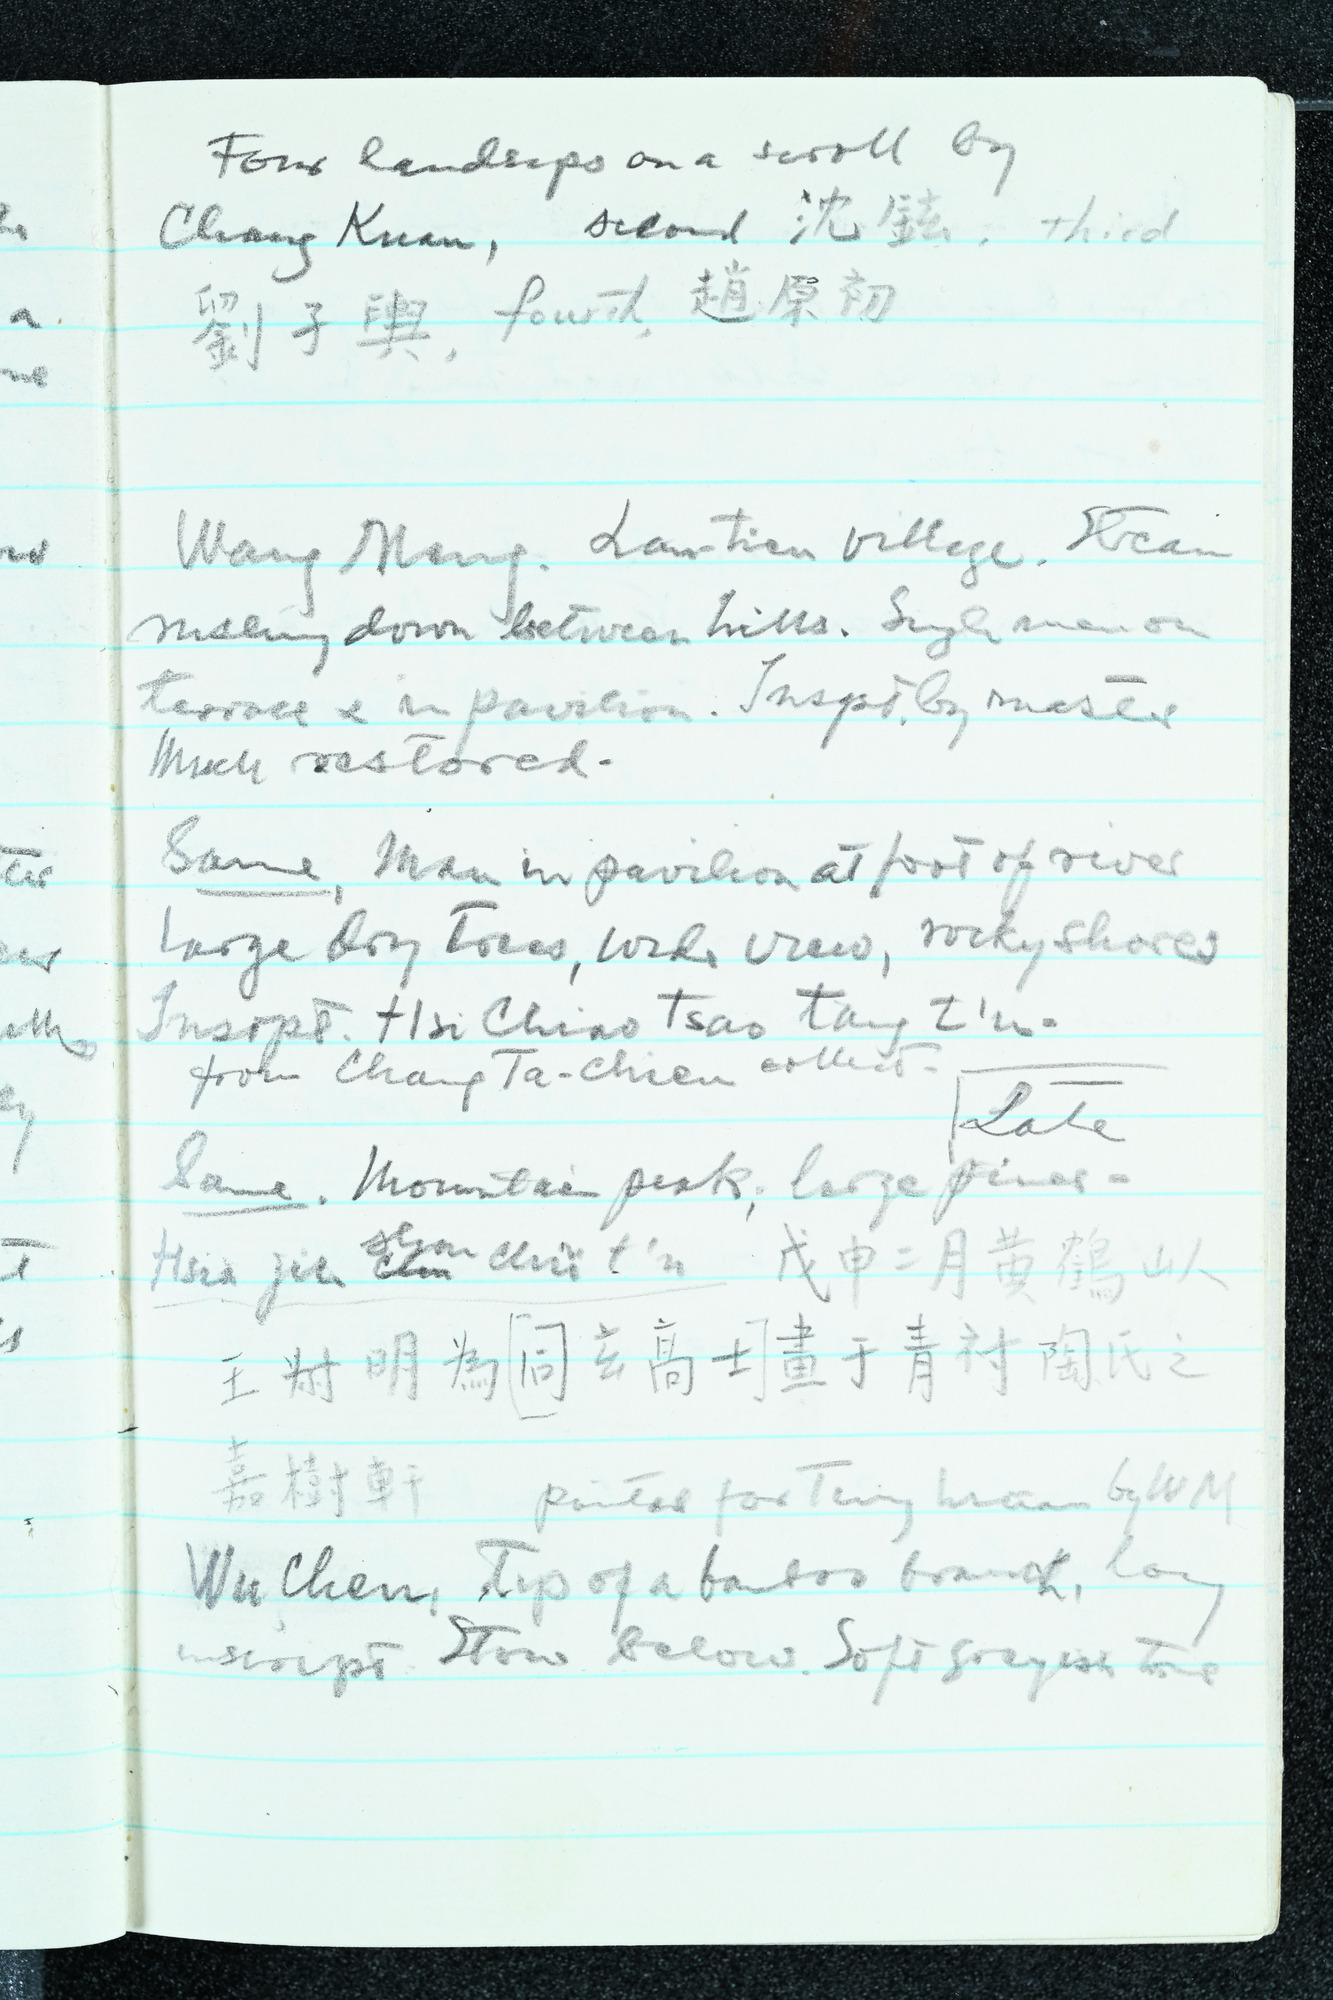 Four landscps on a scroll by
Chang Kuan, second 沈鉉. third
劉子與, fourth, 趙原初
Wang Meng. Lan-tien village. Stream
rushing down between hills. Single man on
terrace & in pavilion. Inscpt. by master
Much restored.
Same, Man in pavilion at foot of river
large dry trees, wide view, rocky shores
Inscrpt. Hsi Chiao Tsao tang t'u.
from Chang Ta-chien collect.
Late
Same. Mountain peak, large pines.
Hsia jih shan chü t'u 戊申二月黄鶴山人
王尌明為[同玄高士]畫于青村陶氏之
嘉樹軒 painted for Tung hsüan by WM
Wu Chen, Tip of a bamboo branch, long
inscript. Stone below. Soft greyish tone